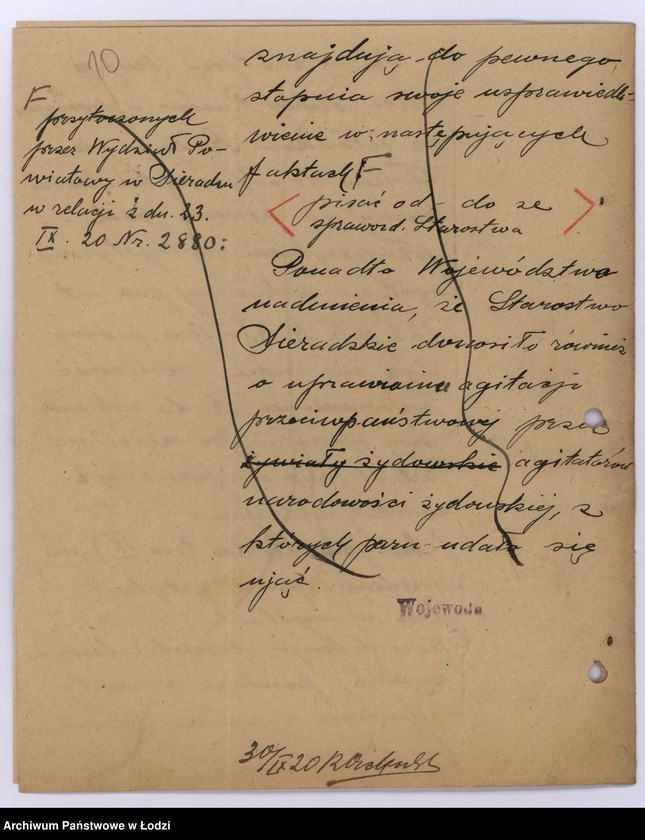 10
F
przytoczonych
przez Wydział Po-
wiatowy w Sieradzu
w relacji z dn. 23.
IX. 20 Nr. 2880:
znajdują do pewnego
stopnia swoje usprawiedli-
wienie w następujących
faktach F
< pisać od - do ze >
sprawozd. Starostwa
Ponadto Województwo
nadmienia, że Starostwo
Sieradzkie donosiło również
o uprawianiu agitacji
przeciwpaństwowej przez
żywioły żydowskie agitatorów
narodowości żydowskiej, z
których paru udało się
ująć.
Wojewoda
30/IX 20
Archiwum Państwowe w Łodzi